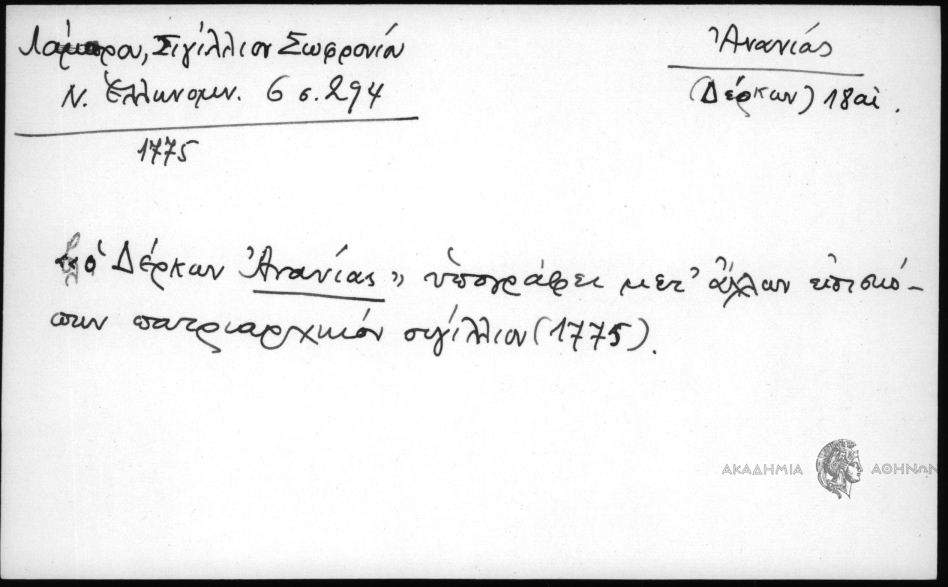 Λάμπρου, Σιγίλλιον Σωφρονίου
Ν. Ἑλληνομν. 6 σ. 294
1775
Ἀνανίας
(Δέρκων) 18 αἰ.
«ὁ Δέρκων Ἀνανίας» ὑπογράφει μετ' ἄλλων ἐπισκό-
πων πατριαρχικόν σιγίλλιον (1775).
ΑΚΑΔΗΜΙΑ ΑΘΗΝΩΝ